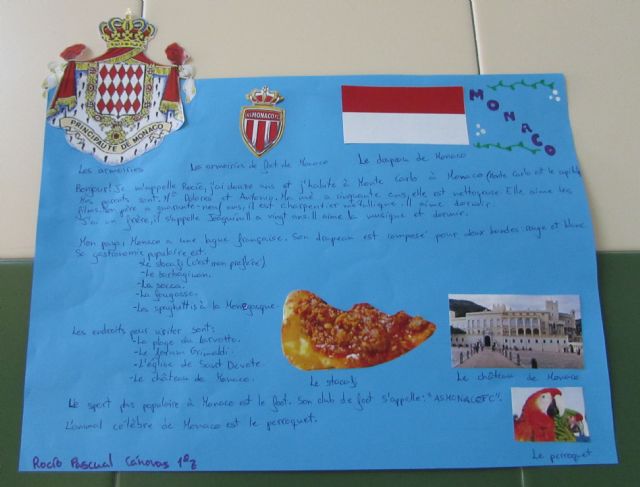 PRINCIPAUTE DE MONACO
AS MONACO FC
MONACO
Les armoiries
Les armoiries de foot de Monaco
Le drapeau de Monaco
Bonjour! Je m'appelle Rocío, j'ai douze ans et j'habite à Monte Carlo à Monaco (Monte Carlo est la capitale)
Mes parents sont Mª Dolores et Antonio. Ma mère a cinquante ans, elle est nettoyeuse. Elle aime les
films. Son père a quarante-neuf ans, il est charpentier métallique. Il aime dormir.
J'ai un frère, il s'appelle Joaquín. Il a vingt ans. Il aime la musique et dormir.
Mon pays, Monaco a une lague française. Son drapeau est composé pour deux bandes: rouge et blanc.
Se gastronomie populaire est:
-Le stocafi (c'est mon préféré)
-Le barbagiuan.
-La socca.
-La fougasse.
-Les spaghettis à la Monegasque.
Les endroits pour visiter sont:
-La plage du Larvotto.
-Le forum Grimaldi.
-L'église de Saint Devote.
-Le château de Monaco.
Le stocafi
Le château de Monaco
Le sport plus populaire à Monaco est le foot. Son club de foot s'appelle: "ASMONACOFC".
L'animal célèbre de Monaco est le perroquet.
Le perroquet
Rocío Pascual Cánovas 1º